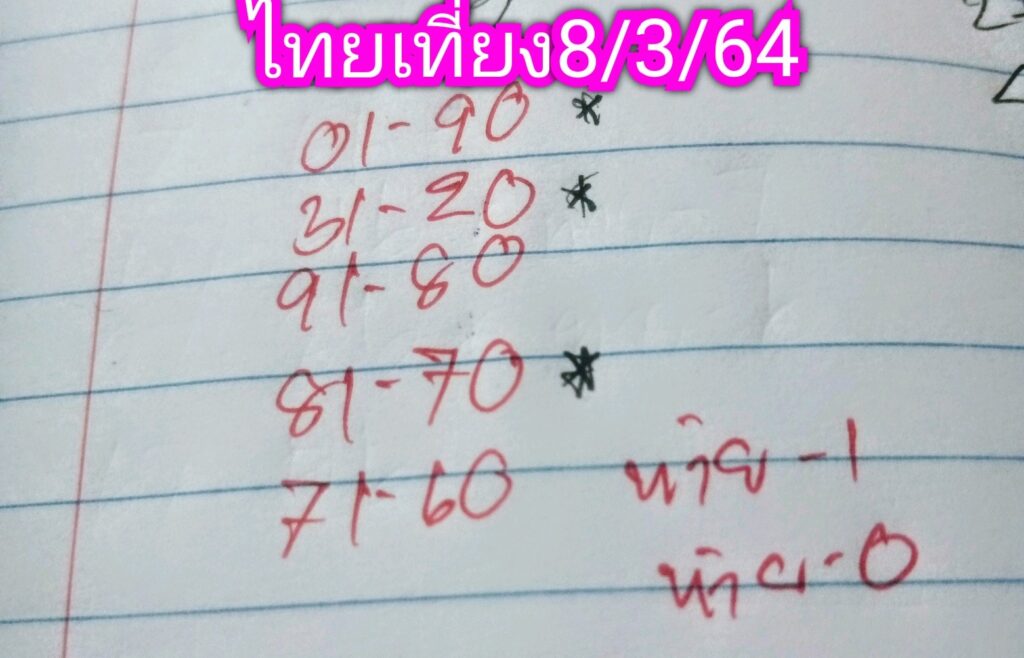 ไทยเที่ยง8/3/64
01-90 *
31-20 *
91-80
81-70 *
71-60
ท้าย-1
ท้าย-0